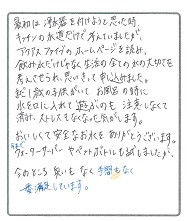 最初は浄水器を付けようと思った時、
キッチンの水道だけで考えていましたが、
アクアス ファイブの ホームページを読み、
飲み水だけじゃなく生活の全ての水の大切さを
考えさせられ、思いきって申し込みました。
まだ 子供がいて お風呂の時に
水を口に入れて遊ぶのも 注意しなくて
済み、ストレスもなくなった気がします。
おいしくて安全なお水を ありがとうございます。
今まで
ウォーターサーバー やペットボトルも試しましたが、
今のところ 臭いもなく 手間もなく
一番満足しています。